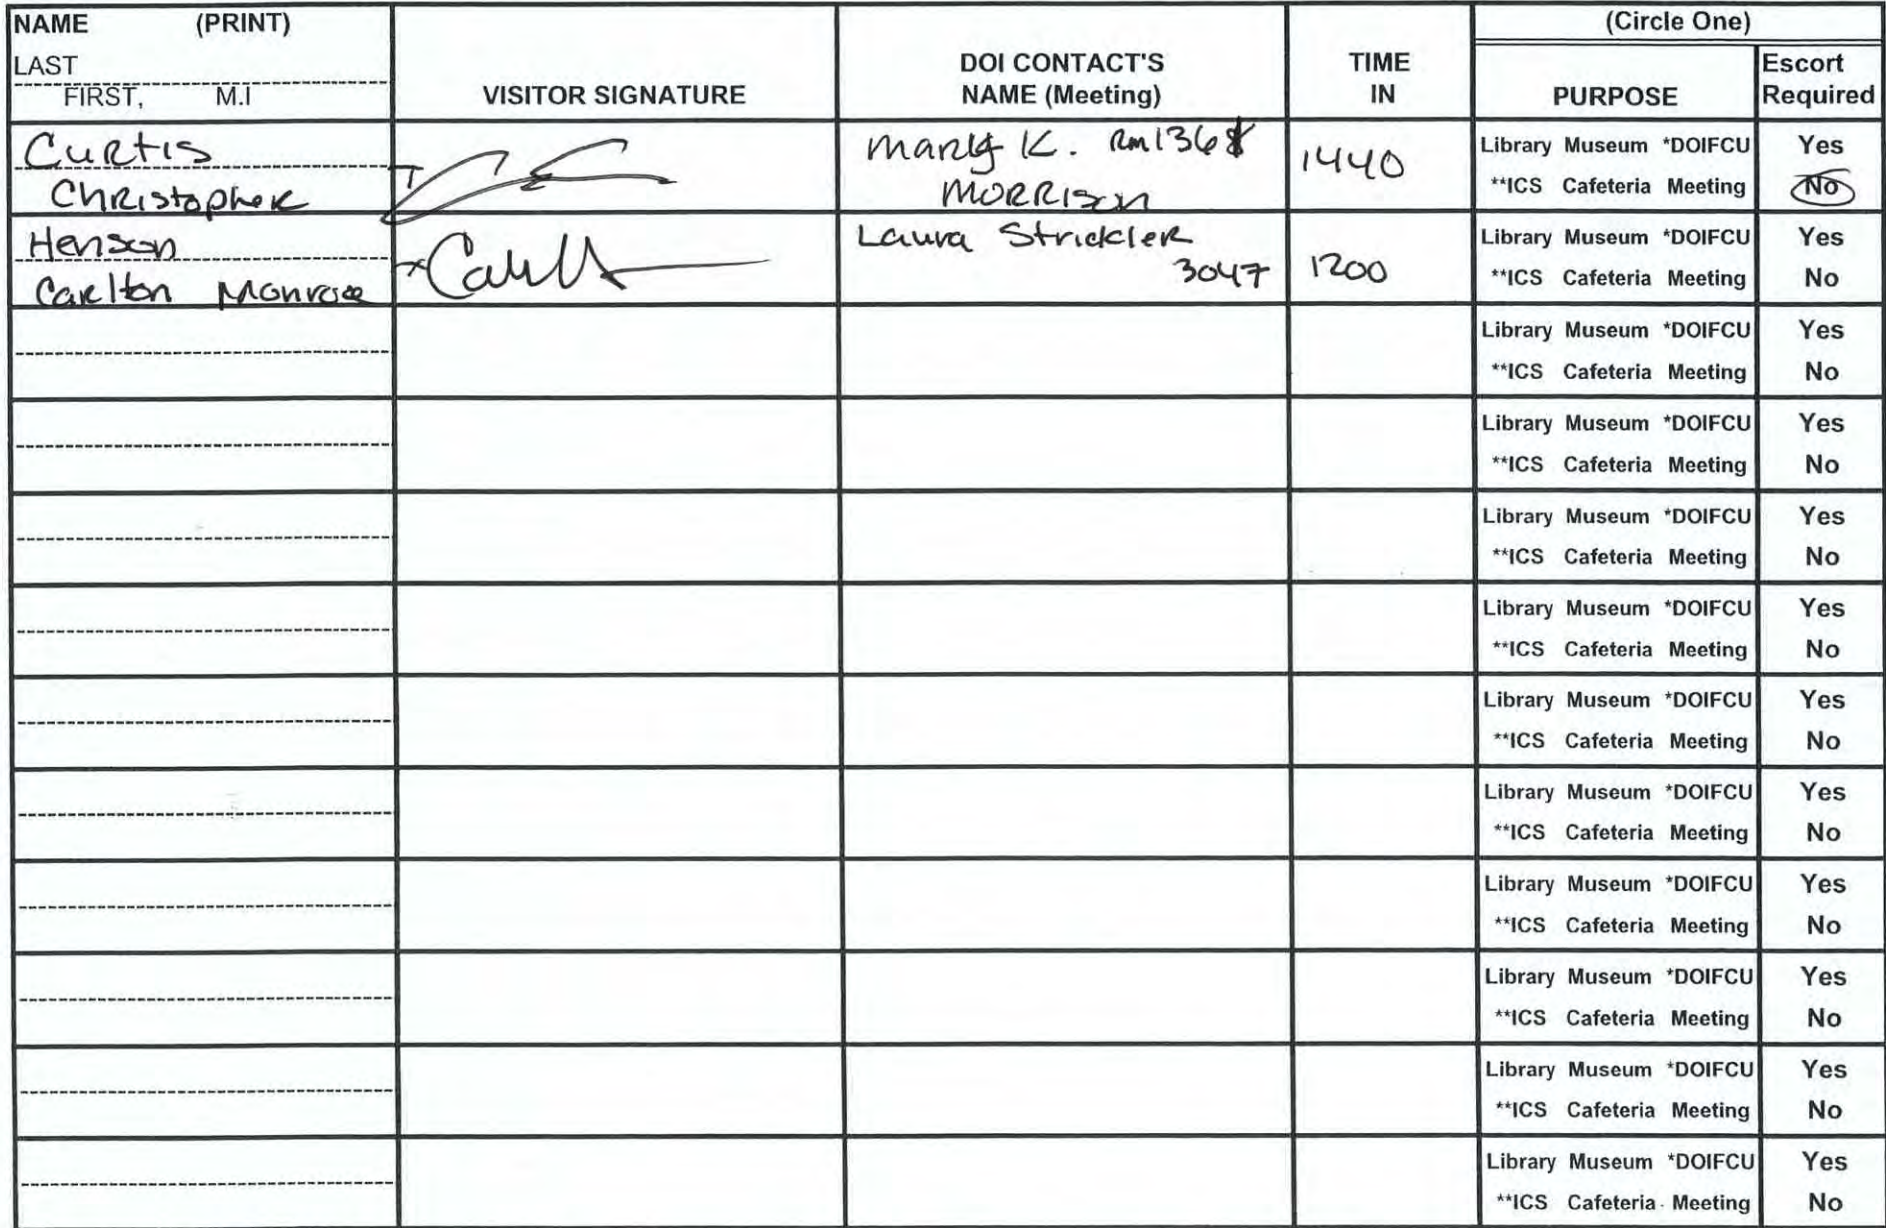 NAME (PRINT)
LAST
FIRST, M.I
VISITOR SIGNATURE
DOI CONTACT'S
NAME (Meeting)
TIME
IN
(Circle One)
PURPOSE
Escort
Required
Curtis
Christopher
K. Rm
MORRISON
1440
Library Museum *DOIFCU Yes
**ICS Cafeteria Meeting No
Henson
Carlton Monroe
Laura Strickler
3047
1200
Library Museum *DOIFCU Yes
**ICS Cafeteria Meeting No
Library Museum *DOIFCU Yes
**ICS Cafeteria Meeting No
Library Museum *DOIFCU Yes
**ICS Cafeteria Meeting No
Library Museum *DOIFCU Yes
**ICS Cafeteria Meeting No
Library Museum *DOIFCU Yes
**ICS Cafeteria Meeting No
Library Museum *DOIFCU Yes
**ICS Cafeteria Meeting No
Library Museum *DOIFCU Yes
**ICS Cafeteria Meeting No
Library Museum *DOIFCU Yes
**ICS Cafeteria Meeting No
Library Museum *DOIFCU Yes
**ICS Cafeteria Meeting No
Library Museum *DOIFCU Yes
**ICS Cafeteria Meeting No
Library Museum *DOIFCU Yes
**ICS Cafeteria Meeting No